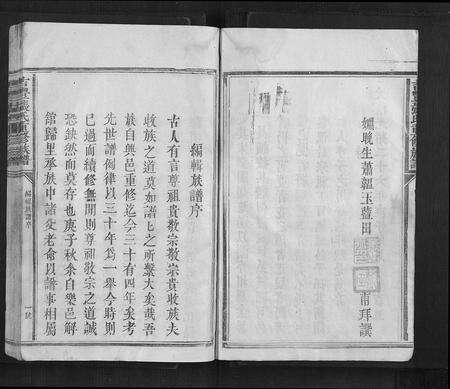 姻晚生蕭韞玉藍田
甫拜譔
編輯族譜序
古人有言尊祖貴敬宗敬宗貴收族夫
收族之道莫如譜譜之所繫大矣哉吾
族自興邑重修迄今三十有四年矣考
先世譜例律以三十年爲一舉今時則
已過而續修無聞則尊祖敬宗之道誠
恐缺然而莫存也庚子秋余自樂邑解
館歸里承族中諸父老命以譜事相屬
編輯譜序
一號